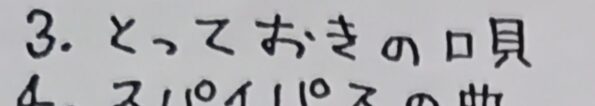 3. とっておきの唄
4. スパイパスの曲